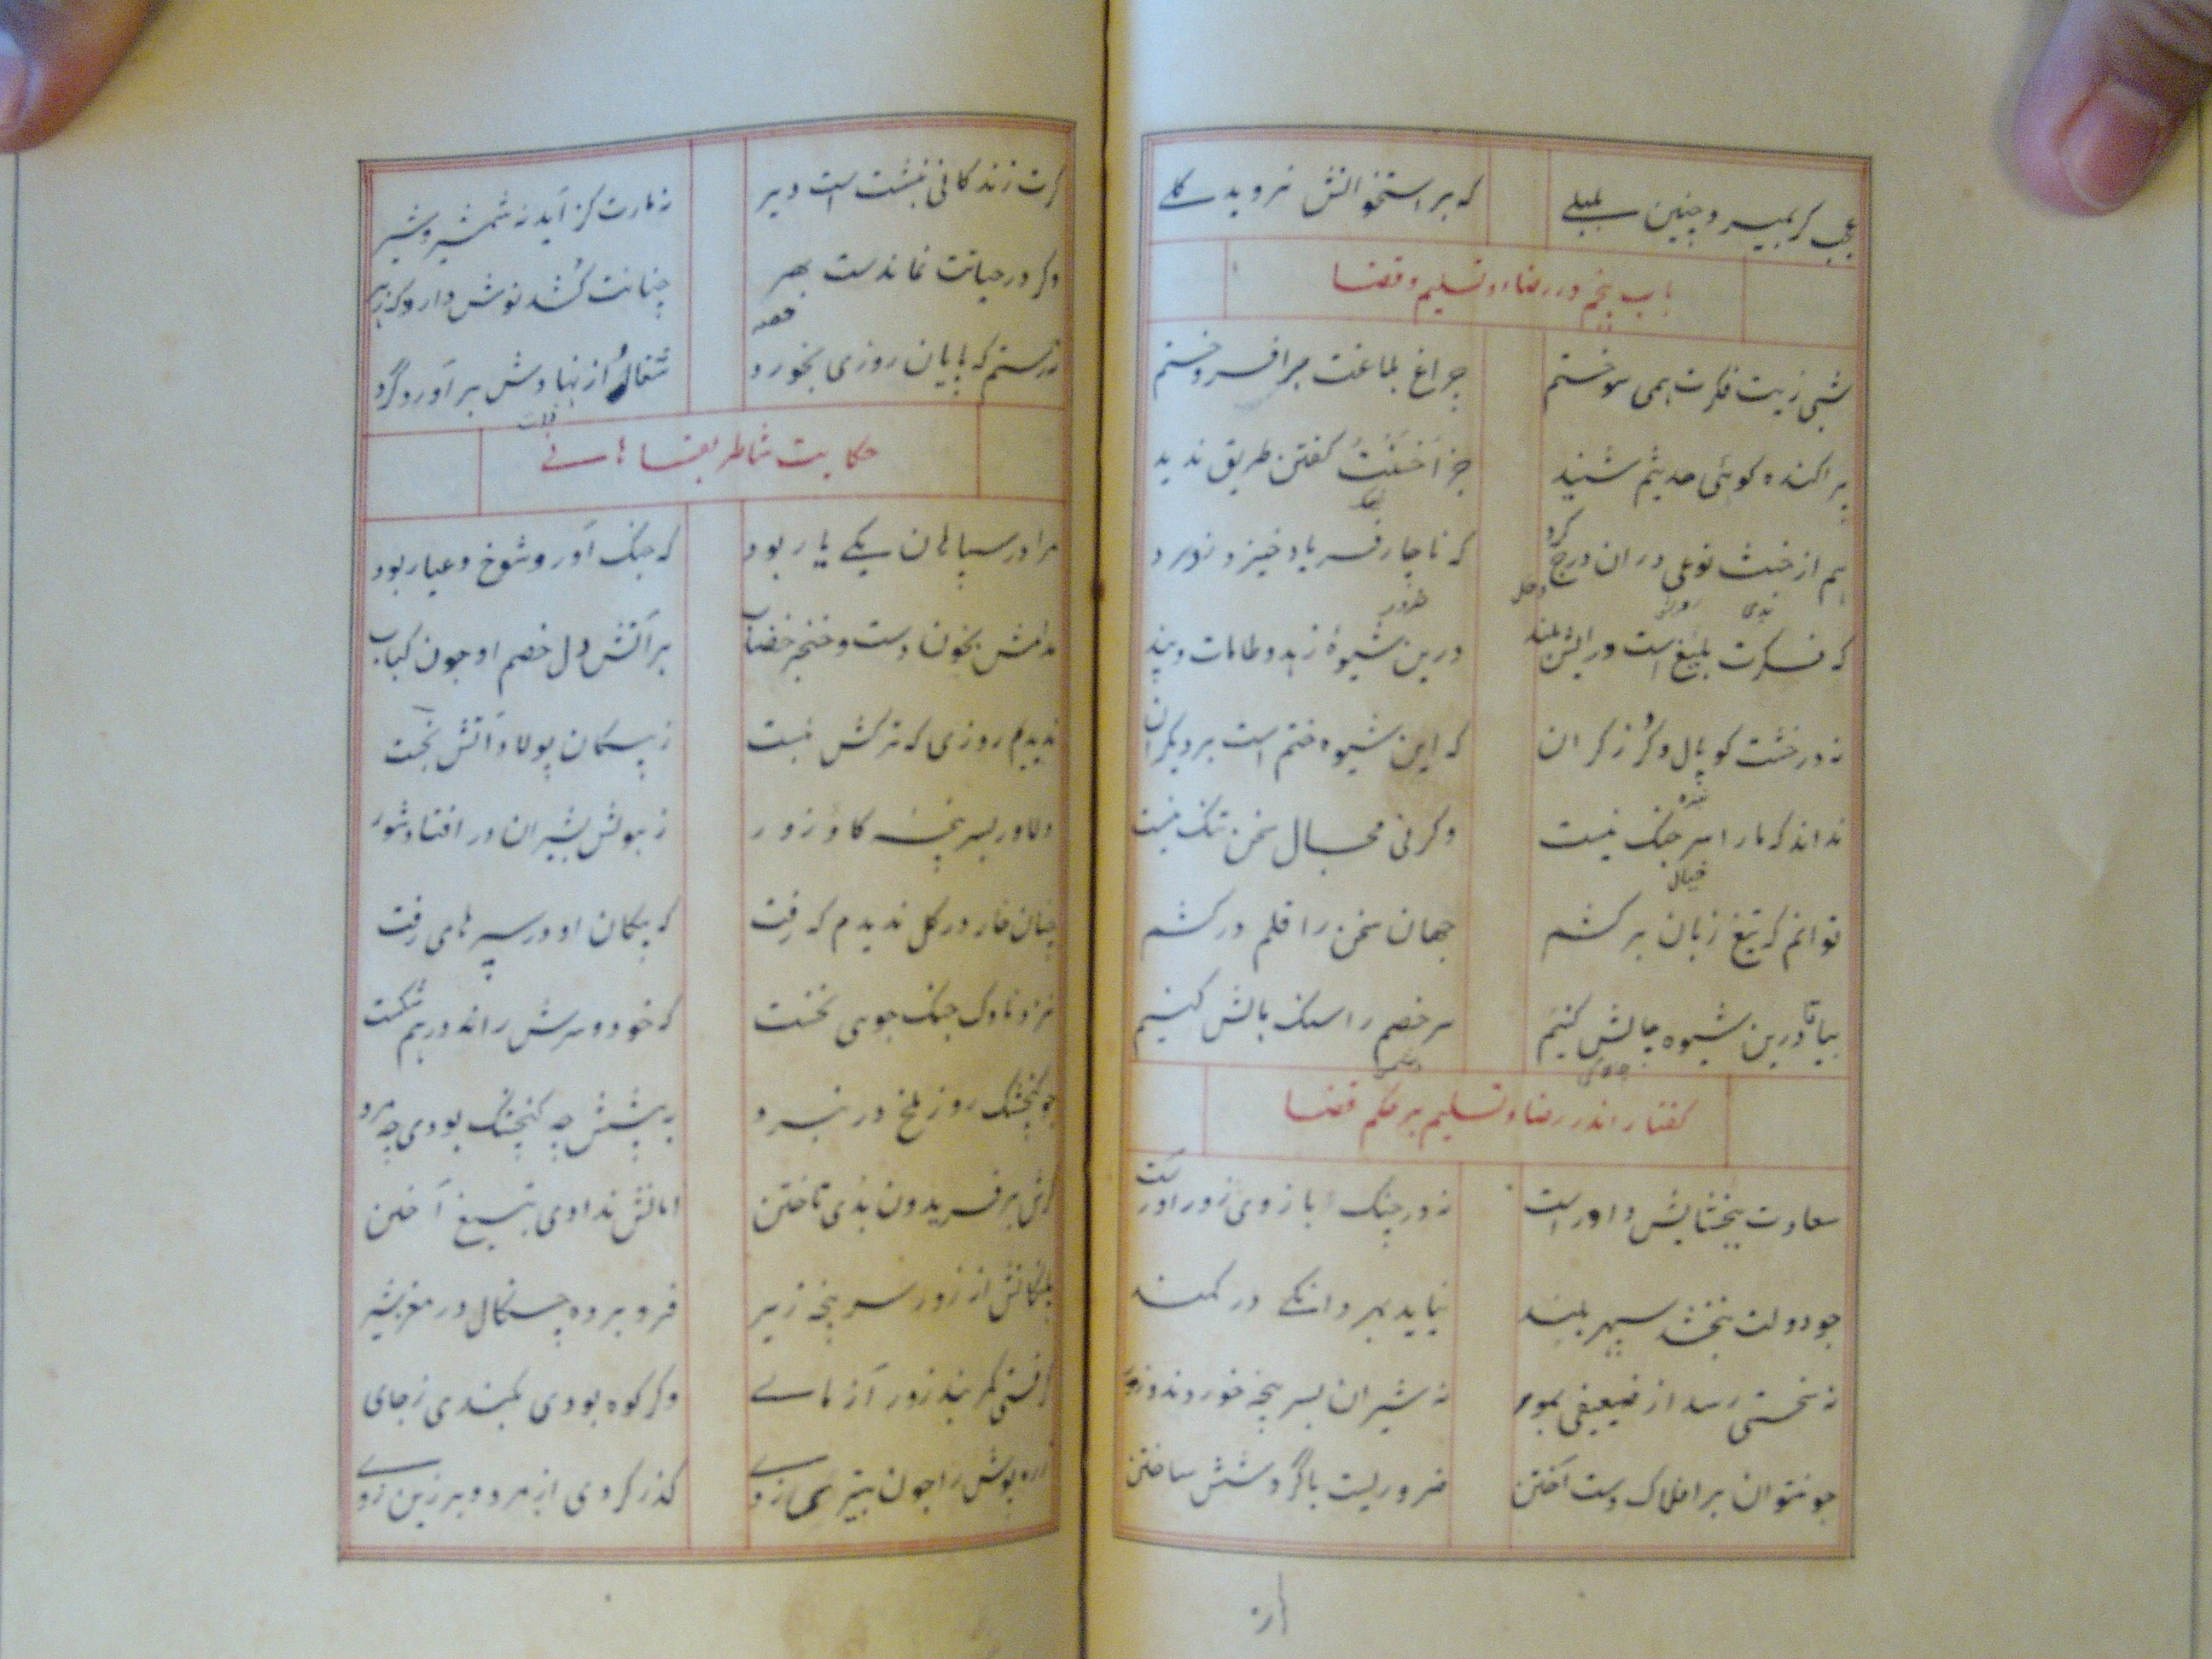 عجب گر بمیرد چنین بلبلی که بر استخوانش نروید گلی
باب پنجم در رضا و تسلیم و قضا
شبی زیت فکرت همی سوختم چراغ بلاغت برافروختم
پراکنده گوئی حدیثم شنید جز احسنت گفتن طریق ندید
هم از خبث نوعی در ان درج کرد که ناچار فریاد خیزد ز درد
که فکرت بلیغ است و رایش بلند درین شیوهٔ زهد و طامات و پند
نه در خشت و کوپال و گرز گران که این شیوه ختم است بر دیگران
نداند که ما را سر جنگ نیست وگرنی مجال سخن تنگ نیست
توانم که تیغ زبان برکشم جهان سخن را قلم درکشم
بیا تا درین شیوه چالش کنیم سر خصم را سنگ بالش کنیم
گفتار اندر رضا و تسلیم بر حکم قضا
سعادت ببخشایش داور است نه در چنگ و بازوی زور آور است
چو دولت نبخشد سپهر بلند نیاید بمردانگی در کمند
نه سختی رسد از ضعیفی بمور نه شیران بسرپنجه خوردند و زور
چو نتوان بر افلاک دست آختن ضروریست با گردشش ساختن
گرت زندگانی نبشت است دیر نه مارت گزاید نه شمشیر و شیر
وگر در حیاتت نماندست بهر چنانت کشد نوش دارو که زهر
نه رستم که پایان روزی بخورد شغاد از نهادش برآورد گرد
حکایت شاطر سپاهانی
مرا در سپاهان یکی یار بود که جنگ آور و شوخ و عیار بود
مدامش بخون دست و خنجر خضاب بر آتش دل خصم او چون کباب
ندیدم روزی که ترکش نبست ز پیکان پولاد آتش نجست
دلاور بسرپنجه گاو زور ز هولش بشیران در افتاد شور
چنان خار در گل ندیدم که رفت که پیکان او در سپرهای زفت
نزد ناوک جنگ جوی نخست که خود و سرش را نه در هم شکست
چو گنجشک روز ملخ در نبرد به پیشش چه گنجشک بودی چه مرد
گرش بر فریدون بدی تاختن امانش ندادی بتیغ آختن
پلنگانش از زور سرپنجه زیر فرو برده چنگال در مغز شیر
گرفتی کمربند زور آزمای وگر کوه بودی بکندی ز جای
زره پوش را چون تبرزین زدی گذر کردی از مرد و بر زین زدی